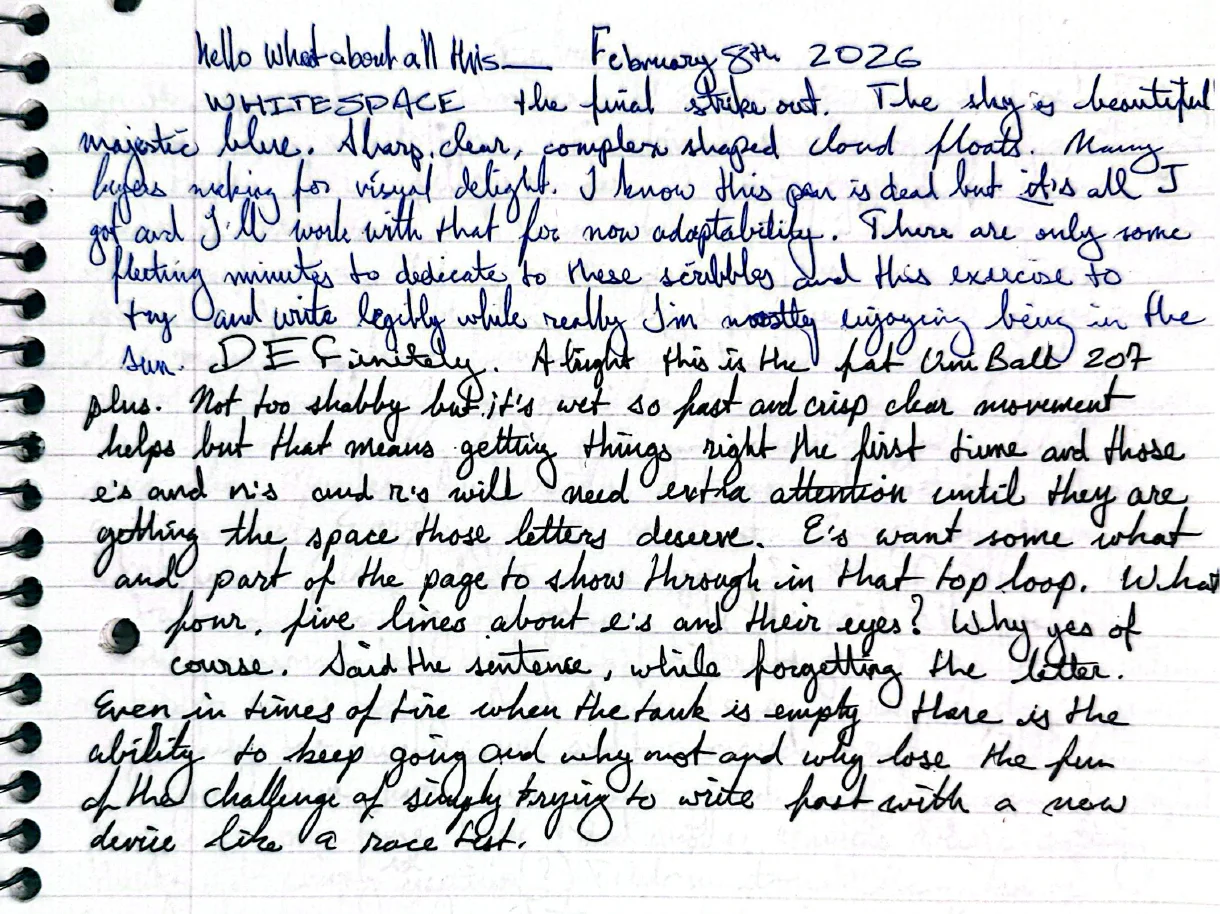 Hello What about all this__ February 8th 2026
WHITESPACE the final strike out. The sky is beautiful
majestic blue. Sharp, clear, complex shaped cloud floats. Many
layers making for visual delight. I know this pen is dead but it's all I
got and I'll work with that for now adaptability. There are only some
fleeting minutes to dedicate to these scribbles and this exercise to
try and write legibly while really I'm mostly enjoying being in the
sun. DEFinitely. Alright this is the fat Uni Ball 207
plus. Not too shabby but it's wet so fast and crisp clear movement
helps but that means getting things right the first time and those
e's and n's and r's will need extra attention until they are
getting the space those letters deserve. E's want some what
and part of the page to show through in that top loop. What
four, five lines about e's and their eyes? Why yes of
course. Said the sentence, while forgetting the letter.
Even in times of tire when the tank is empty there is the
ability to keep going and why not and why lose the fun
of the challenge of simply trying to write fast with a new
device like a race test.